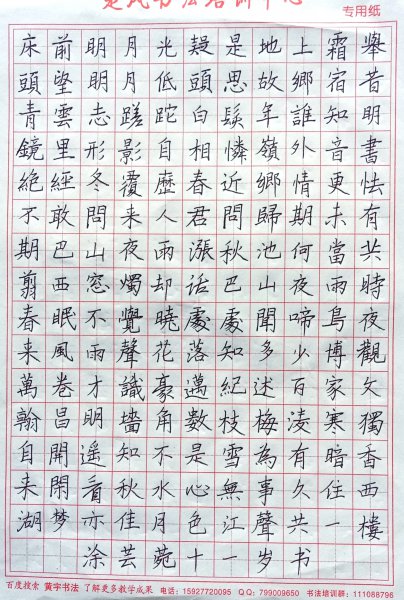 书法培训中心
专用纸
床前明月光疑是地上霜舉
頭望明月低頭思故鄉宿昔
青雲志蹉跎白髮年誰知明
鏡里形影自相憐嶺外音書
絕經冬覆歷春近鄉情更怯
不敢問来人君問歸期未有
期巴山夜雨漲秋池何當共
翦西窓燭却話巴山夜雨時
春眠不覺曉處處聞啼鳥夜
来風雨聲花落知多少博觀
萬卷才識豪邁紀述百家文
翰昌明墻角數枝梅凌寒獨
自開遥知不是雪為有暗香
来閑看秋水心無事久住西
湖夢亦佳月色江聲共一樓
涂芸菀十一岁书
百度搜索 黄宇书法 了解更多教学成果 电话：15927720095 QQ：799009650 书法培训群：111088796